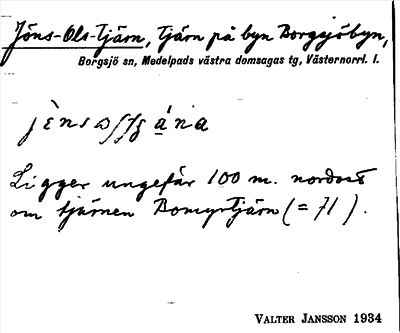 Jöns-Ols-tjärn, tjärn på byn Borgsjöbyn,
Borgsjö sn, Medelpads västra domsagas tg, Västernorrl. l.
Ligger ungefär 100 m. nordost
om tjärnen Bomyrtjärn (= 71).
VALTER JANSSON 1934